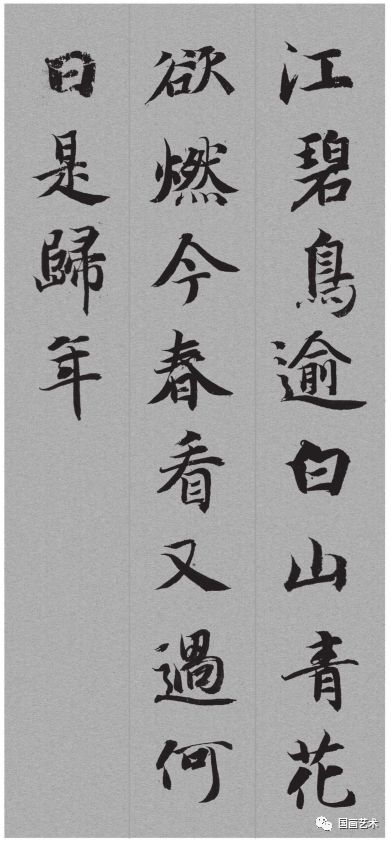 江碧鳥逾白山青花
欲燃今春看又過何
日是歸年
国画艺术